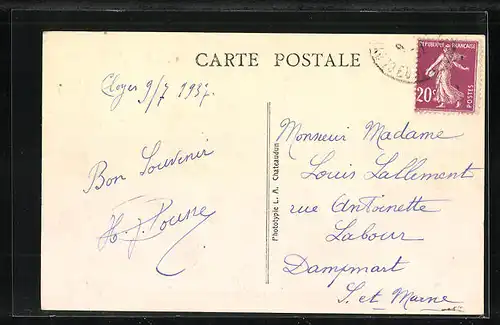 CARTE POSTALE
RÉPUBLIQUE FRANÇAISE
20c
POSTES
Cloyes 9/7 1937.
Bon Souvenir
Monsieur Madame
Louis Lallement
rue Antoinette
Labour
Dampmart
S. et Marne
Phototypie L. A. Chateaudun